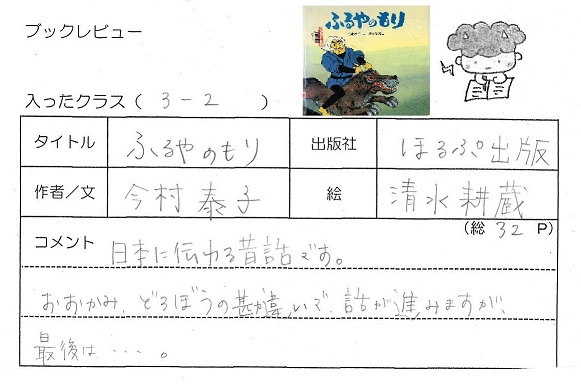 ブックレビュー
ふるやのもり
入ったクラス( 3-2 )
タイトル ふるやのもり 出版社 ほるぷ出版
作者/文 今村泰子 絵 清水耕蔵
(総 32 P)
コメント 日本に伝わる昔話です。
おおかみ、どろぼうの勘違いで、話が進みますが、
最後は・・・。